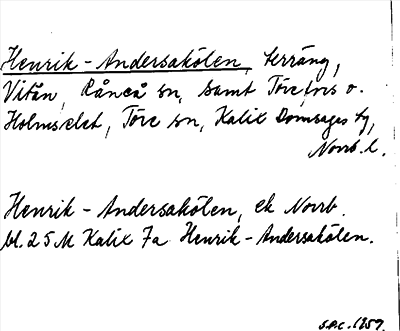 Henrik-Andersakölen, terräng,
Vitån, Råneå sn, samt Törefors o.
Holmselet, Töre sn, Kalix Domsagas tg,
Norrb. l.
Henrik-Andersakölen, ek Norrb.
bl. 25 M Kalix 7a Henrik-Andersakölen.
1959.